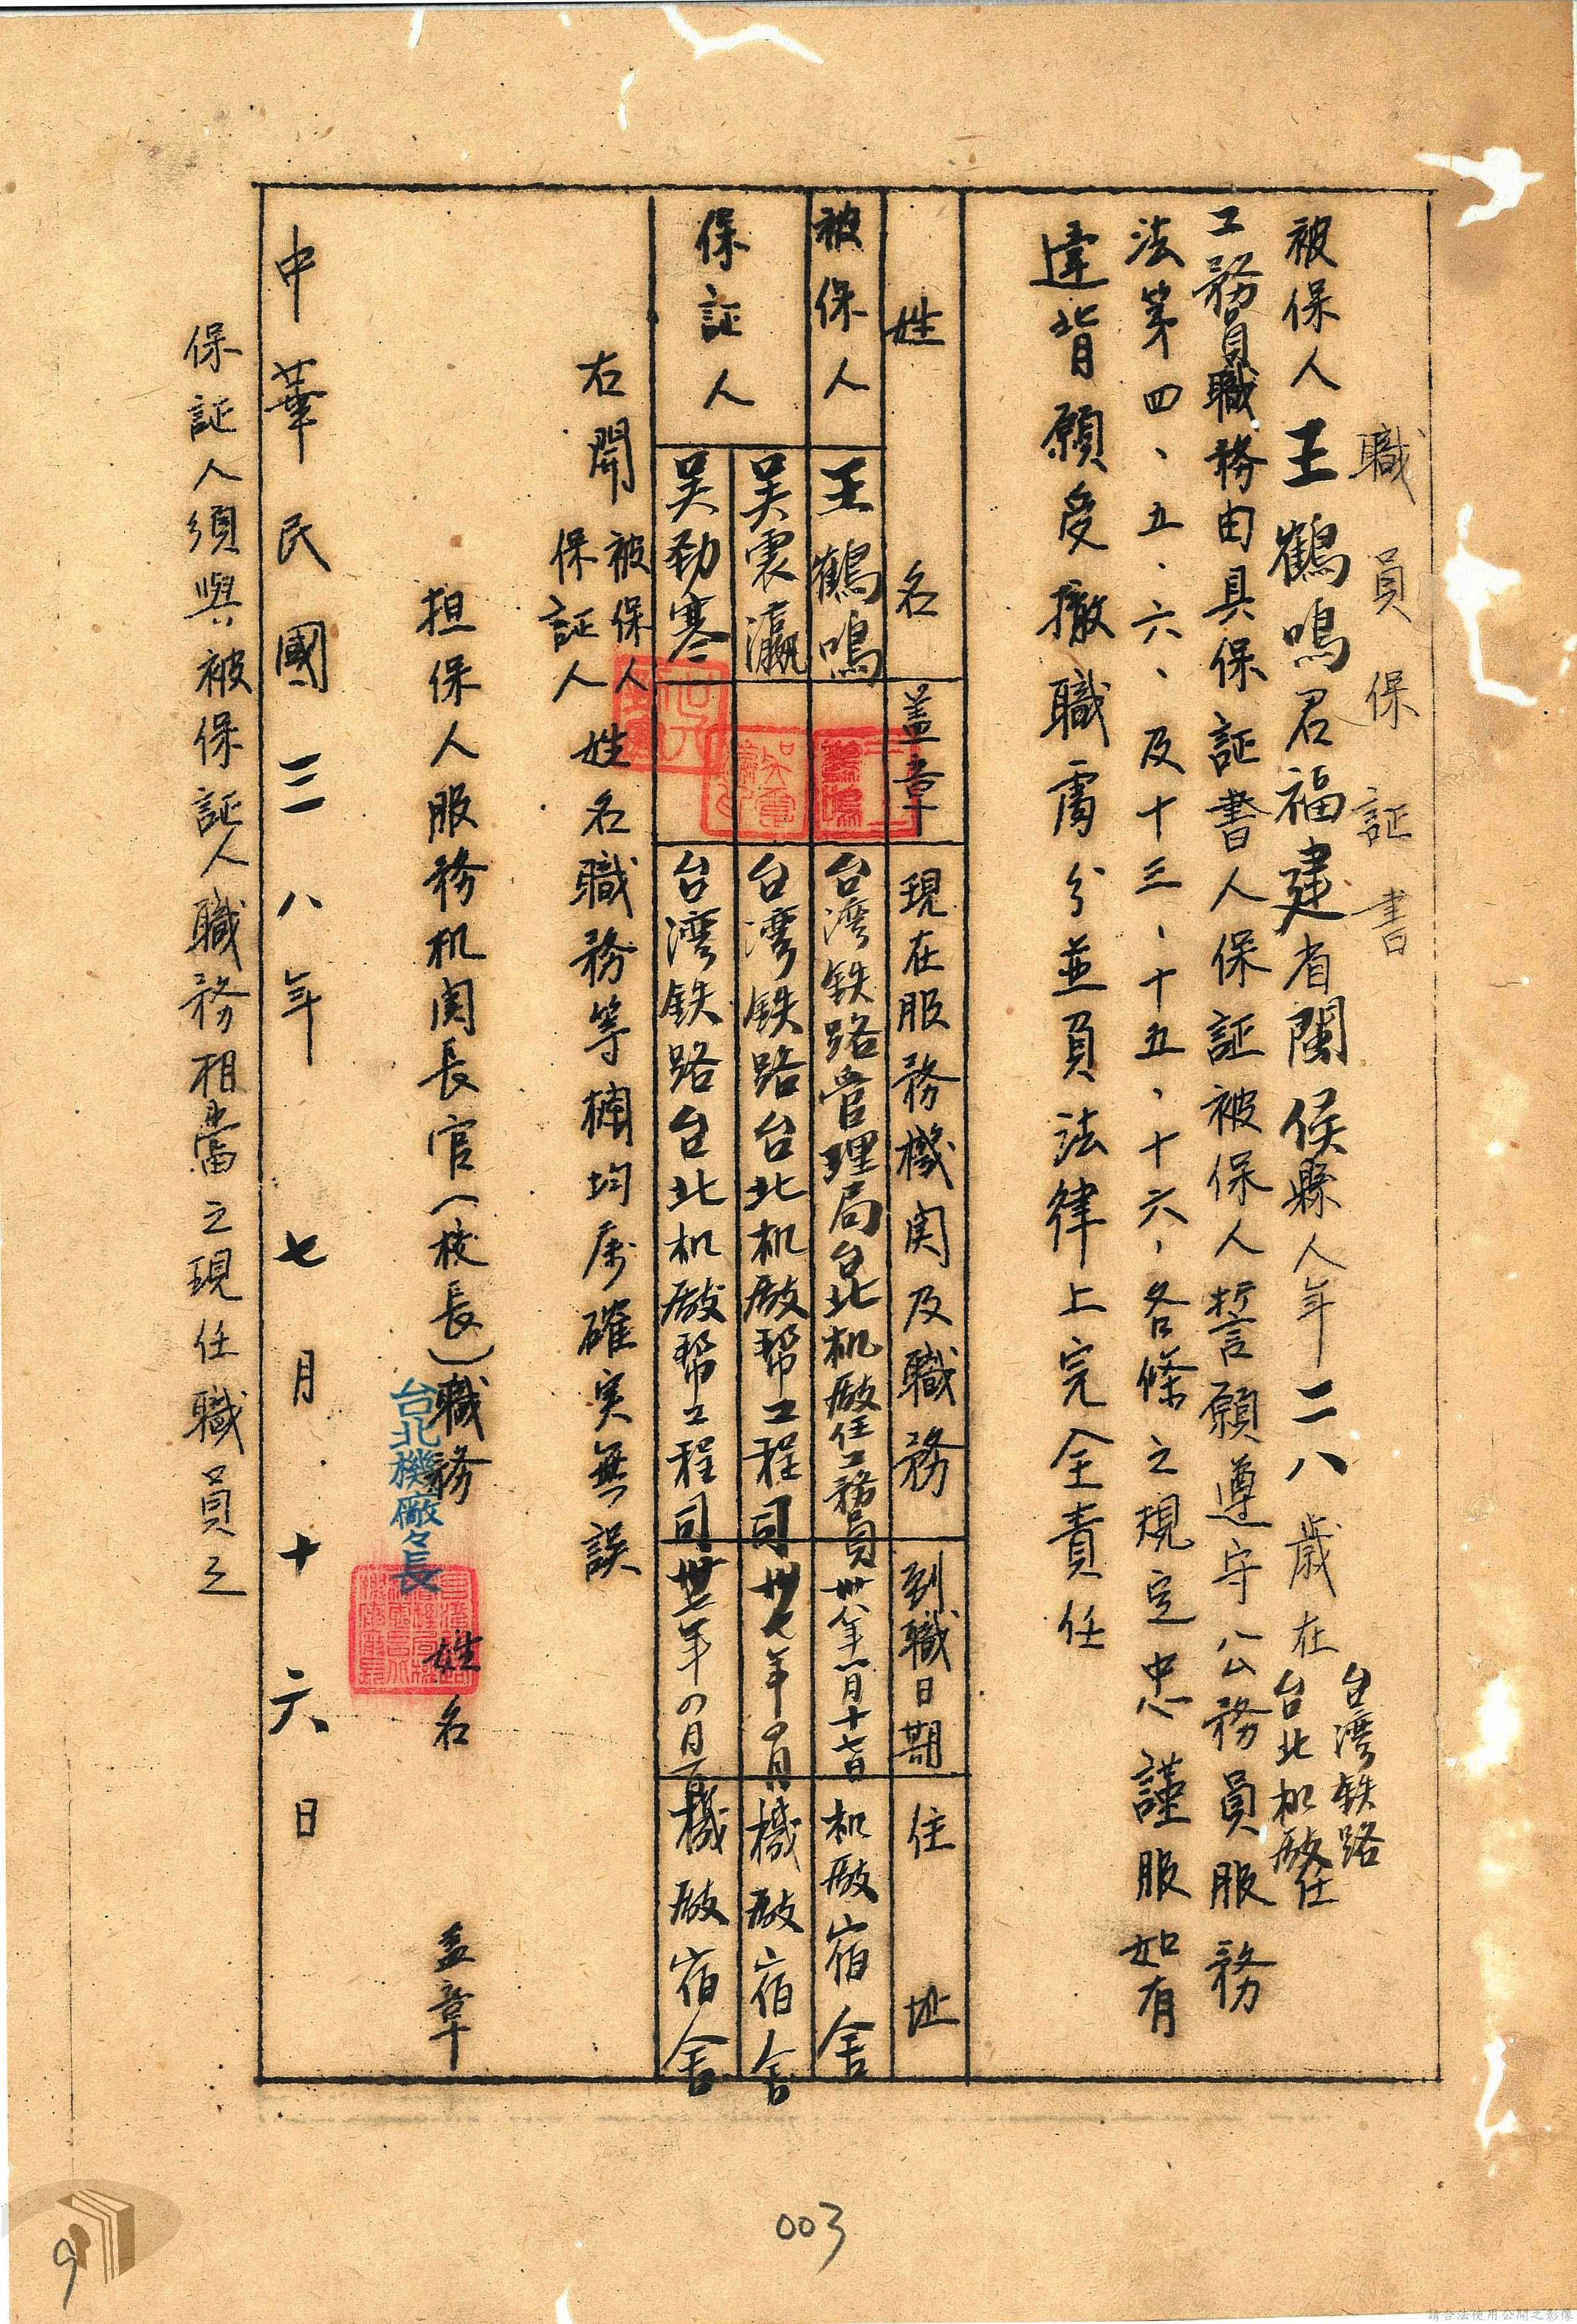 職員保証書
被保人王鶴鳴君福建省閩侯縣人年二八歲在台灣铁路台北机厰任
工務員職務由具保証書人保証被保人誓願遵守公務員服務
法第四、五、六、及十三、十五、十六、各條之規定忠謹服如有
違背願受撤職處分並負法律上完全責任
姓名 盖章 現在服務機関及職務 到職日期 住址
被保人 王鶴鳴 台灣铁路管理局台北机厰任工務員 卅八年一月十七日 机厰宿舍
保証人 吴震瀛 台灣铁路台北机厰帮工程司 卅七年 机厰宿舍
吴勁寒 台灣铁路台北机厰帮工程司 機厰宿舍
右開被保人保証人姓名職務等欄均属確実無誤
担保人服務机関長官(校長)職務 姓名 盖章
台北機廠々長
中華民國三八年七月十六日
保証人須與被保証人職務相當之現任職員之
003
9
請合法使用公開之影像